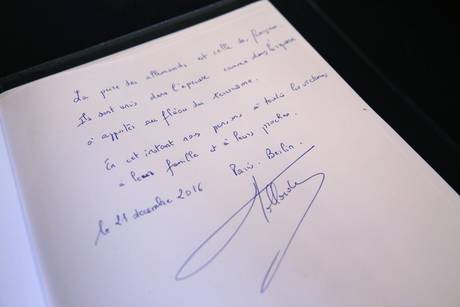 La peine des allemands est celle des français
Ils sont unis dans l'épreuve comme dans la réponse
à apporter au fléau du terrorisme.
En cet instant nous pensons à toutes les victimes
à leurs familles et à leurs proches.
Paris. Berlin.
le 21 décembre 2016